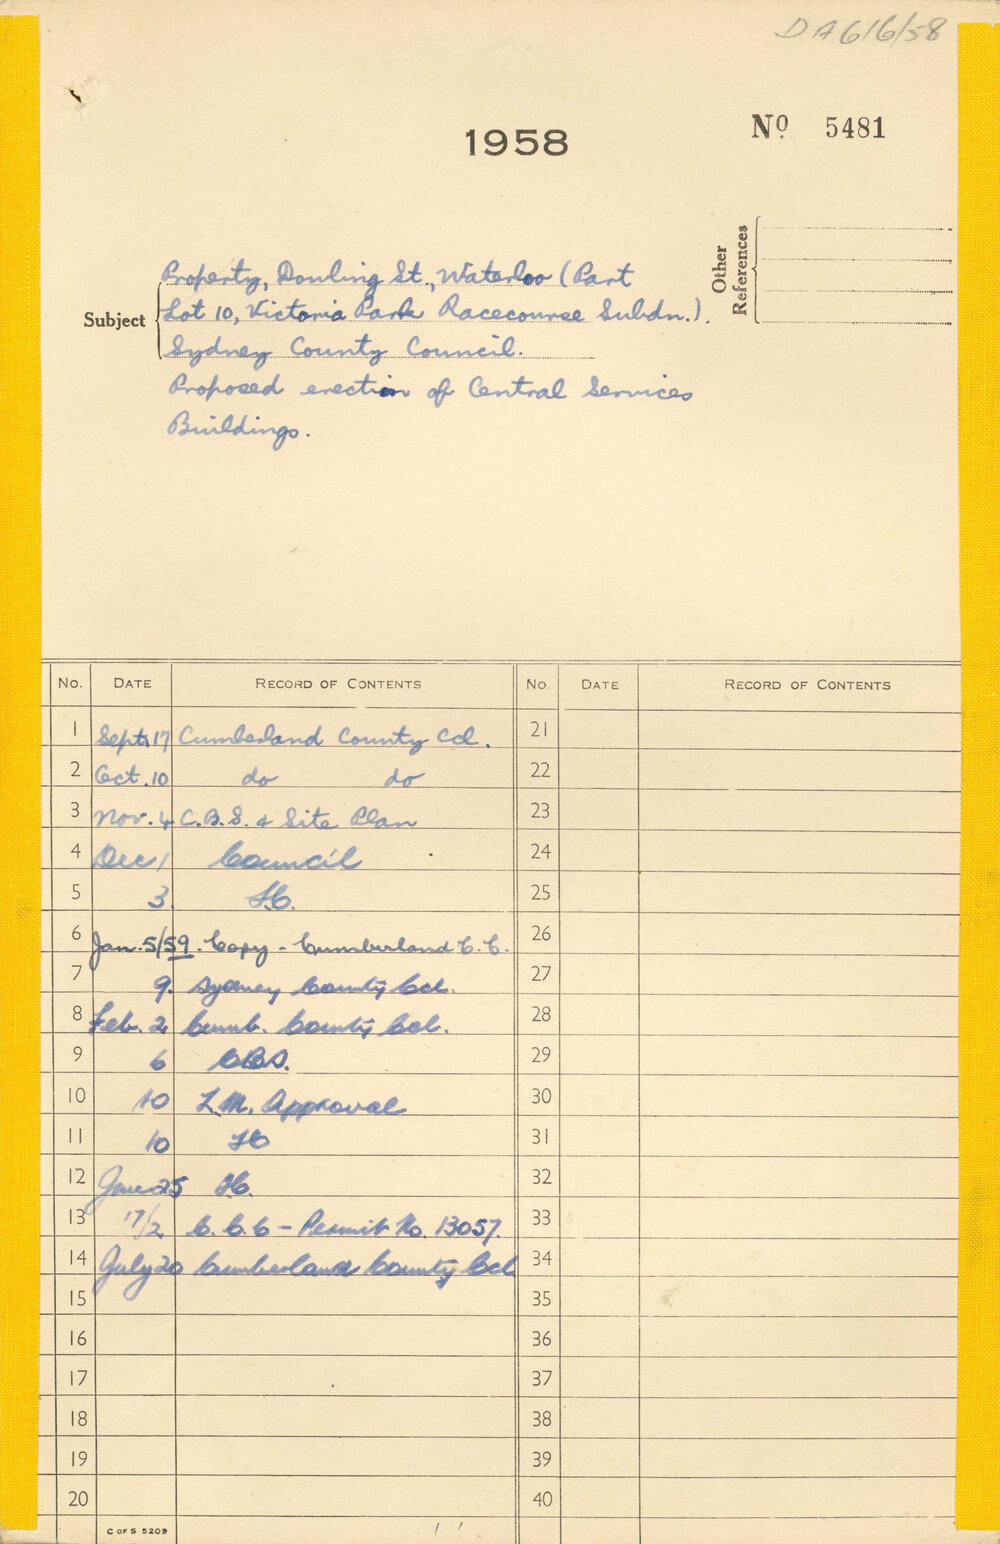 DA 616/58
1958
No 5481
Other References
Property, Dowling St., Waterloo (Part
Subject
Lot 10, Victoria Park Racecourse Subdn.).
Sydney County Council.
Proposed erection of Central Services
Buildings.
No. DATE RECORD OF CONTENTS No. DATE RECORD OF CONTENTS
1 Sept. 17 Cumberland County Ccl. 21
2 Oct. 10 do do 22
3 Nov. 4 C.B.S. & Site Plan 23
4 Dec 1 Council 24
5 3. 25
6 Jan. 5/59. Copy - Cumberland C.C. 26
7 9. Sydney County Ccl. 27
8 Feb. 2 Cumb. County Ccl. 28
9 6 CBS. 29
10 10 L.M. Approval 30
11 10 31
12 June 25 32
13 17/2 C.C.C - Permit No. 13057. 33
14 July 20 Cumberland County Ccl 34
15 35
16 36
17 37
18 38
19 39
20 40
C OF S 5209